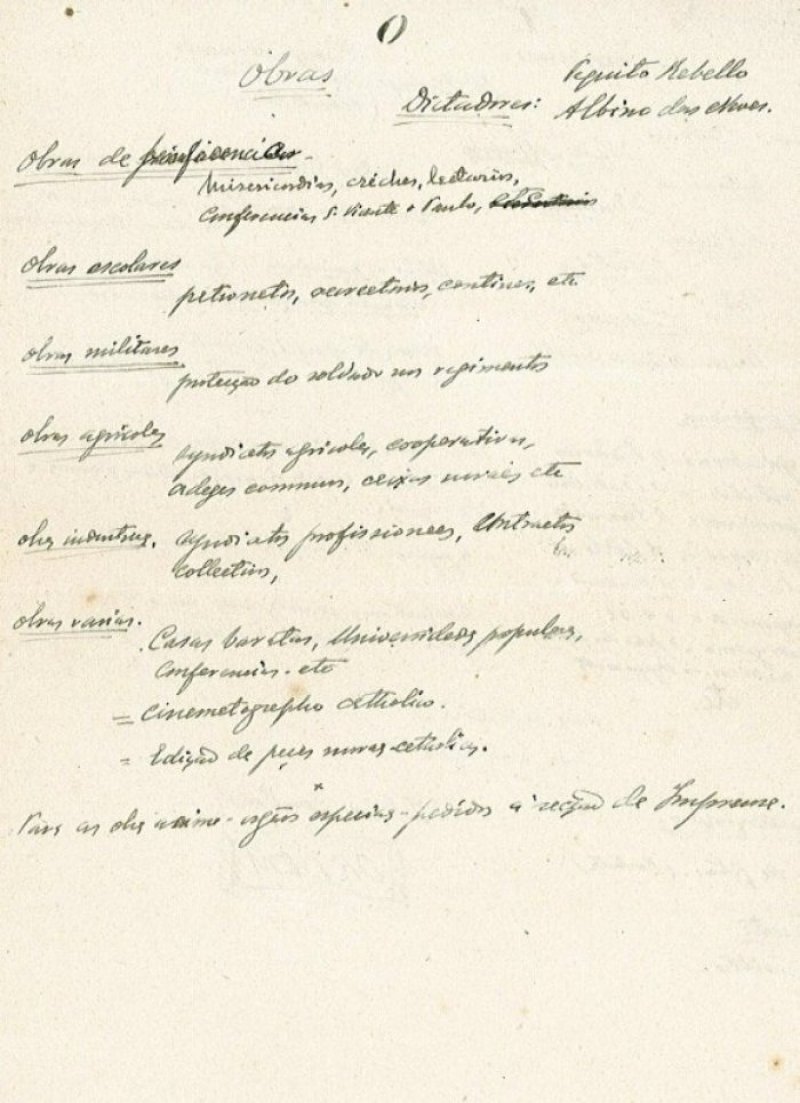 O
Obras
Pequito Rebello
Dictadores: Albino das Neves.
Obras de
Misericordias, créches, lactarios,
Conferencias S. Vicente + Paulo,
Obras escolares
patronatos, cantinas, etc
Obras militares
protecção do soldado nos regimentos
Obras agricolas
syndicatos agricolas, cooperativas,
adegas communs, caixas ruraes etc
Obras industriaes.
syndicatos profissionaes, Contractos
collectivos,
Obras varias.
Casas baratas, Universidades populares,
Conferencias. etc
= Cinematographo catholico.
= Edição de peças novas catholicas.
x
Para as obras acima - orgãos especiaes - pedidos á secção de Imprensa.